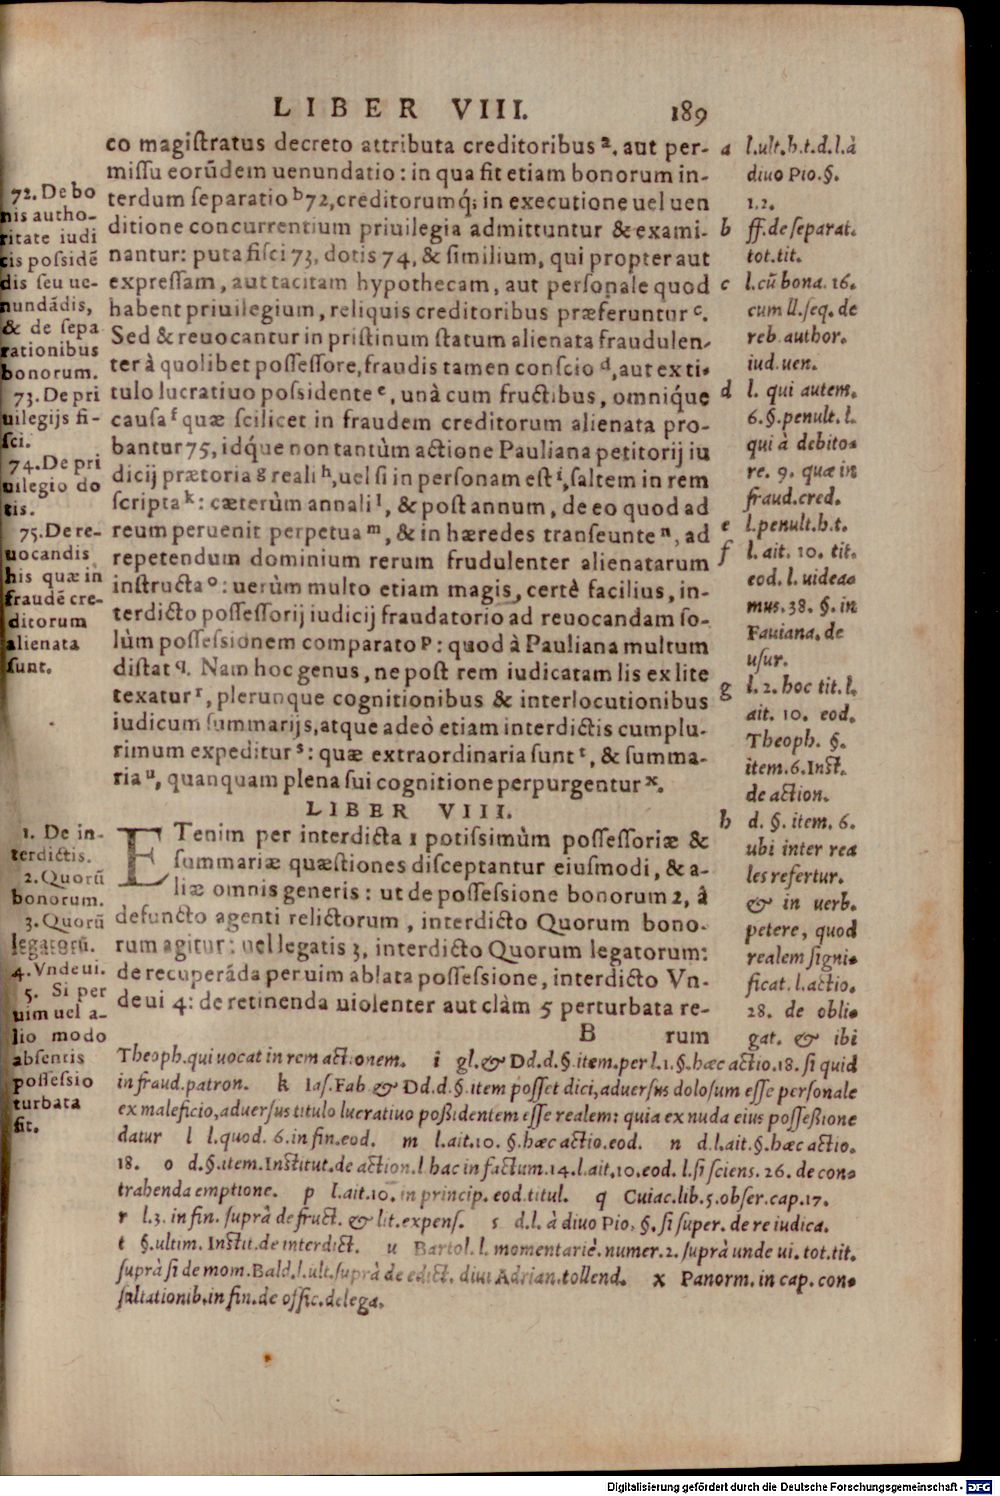 LIBER VIII. 189
eo magiſtratus decreto attributa creditoribus ª, aut per-
miſſu eorūdem uenundatio: in qua fit etiam bonorum in-
terdum ſeparatio ᵇ 72, creditorumq́; in executione uel uen
ditione concurrentium priuilegia admittuntur & exami-
nantur: puta fiſci 73, dotis 74, & ſimilium, qui propter aut
expreſſam, aut tacitam hypothecam, aut perſonale quod
habent priuilegium, reliquis creditoribus præferuntur ᶜ.
Sed & reuocantur in priſtinum ſtatum alienata fraudulen-
ter à quolibet poſſeſſore, fraudis tamen conſcio ᵈ, aut ex ti-
tulo lucratiuo poſsidente ᵉ, unà cum fructibus, omniq́ue
cauſa ᶠ quæ ſcilicet in fraudem creditorum alienata pro-
bantur 75, idq́ue non tantùm actione Pauliana petitorij iu
dicij prætoria ᵍ reali ʰ, uel ſi in perſonam eſt ⁱ, ſaltem in rem
ſcripta ᵏ: cæterùm annali ˡ, & poſt annum, de eo quod ad
reum peruenit perpetua ᵐ, & in hæredes tranſeunte ⁿ, ad
repetendum dominium rerum frudulenter alienatarum
inſtructa ᵒ: uerùm multo etiam magis, certè facilius, in-
terdicto poſſeſſorij iudicij fraudatorio ad reuocandam ſo-
lùm poſſeſsionem comparato ᵖ: quod à Pauliana multum
diſtat q. Nam hoc genus, ne poſt rem iudicatam lis ex lite
texatur ʳ, plerunque cognitionibus & interlocutionibus
iudicum ſummarijs, atque adeò etiam interdictis cumplu-
rimum expeditur ˢ: quæ extraordinaria ſunt ᵗ, & ſumma-
ria ᵘ, quanquam plena ſui cognitione perpurgentur ˣ.
LIBER VIII.
ETenim per interdicta 1 potiſsimùm poſſeſſoriæ &
ſummariæ quæſtiones diſceptantur eiuſmodi, & a-
liæ omnis generis: ut de poſſeſsione bonorum 2, à
defuncto agenti relictorum, interdicto Quorum bono-
rum agitur: uel legatis 3, interdicto Quorum legatorum:
de recuperāda per uim ablata poſſeſsione, interdicto Vn-
de ui 4: de retinenda uiolenter aut clàm 5 perturbata re-
B rum
72. De bo
nis autho-
ritate iudi
cis poſsidē
dis ſeu ue-
nundādis,
& de ſepa
rationibus
bonorum.
73. De pri
uilegijs fi-
ſci.
74. De pri
uilegio do
tis.
75. De re-
uocandis
his quæ in
fraudē cre-
ditorum
alienata
ſunt.
1. De in-
terdictis.
2. Quorū
bonorum.
3. Quorū
legatorū.
4. Vnde ui.
5. Si per
uim uel a-
lio modo
abſentis
poſſeſsio
turbata
ſit.
a l. ult. h. t. d. l. à
diuo Pio. §.
1. 2.
b ff. de ſeparat.
tot. tit.
c l. cū bona. 16.
cum ll. ſeq. de
reb. author.
iud. uen.
d l. qui autem.
6. §. penult. l.
qui à debito-
re. 9. quæ in
fraud. cred.
e l. penult. h. t.
f l. ait. 10. tit.
eod. l. uidea-
mus. 38. §. in
Fauiana. de
uſur.
g l. 2. hoc tit. l.
ait. 10. eod.
Theoph. §.
item. 6. Inſt.
de action.
h d. §. item. 6.
ubi inter rea
les refertur.
& in uerb.
petere, quod
realem ſigni-
ficat. l. actio.
28. de obli-
gat. & ibi
Theoph. qui uocat in rem actionem. i gl. & Dd. d. §. item. per l. 1. §. hæc actio. 18. ſi quid
in fraud. patron. k Iaſ. Fab. & Dd. d. §. item poſſet dici, aduerſus doloſum eſſe perſonale
ex maleficio, aduerſus titulo lucratiuo poßidentem eſſe realem: quia ex nuda eius poſſeßione
datur l l. quod. 6. in fin. eod. m l. ait. 10. §. hæc actio. eod. n d. l. ait. §. hæc actio.
18. o d. §. item. Inſtitut. de action. l hac in factum. 14. l. ait. 10. eod. l. ſi ſciens. 26. de con-
trahenda emptione. p l. ait. 10. in princip. eod. titul. q Cuiac. lib. 5. obſer. cap. 17.
r l. 3. in fin. ſuprà de fruct. & lit. expenſ. s d. l. à diuo Pio, §. ſi ſuper. de re iudica.
t §. ultim. Inſtit. de interdict. u Bartol. l. momentariè. numer. 2. ſuprà unde ui. tot. tit.
ſuprà ſi de mom. Bald. l. ult. ſuprà de edict. diui Adrian. tollend. x Panorm. in cap. con-
ſultationib. in fin. de offic. delega.
Digitalisierung gefördert durch die Deutsche Forschungsgemeinschaft - DFG